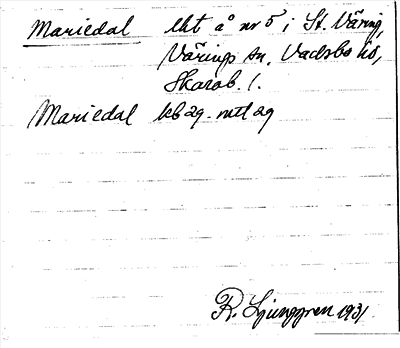 Mariedal lht å nr 5 i St. Väring,
Värings sn, Vadsbo hd,
Skarab. l.
Mariedal kb 29. mtl 29
R. Ljunggren 1931